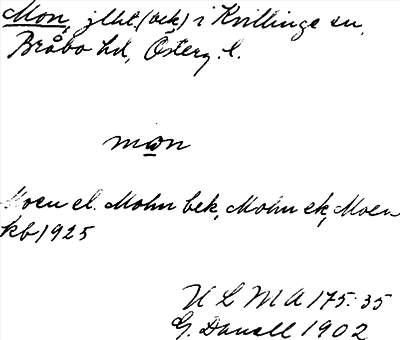 Mon, jlht. (bek.) i Kvillinge sn,
Bråbo hd, Österg. l.
mon
Moen el. Mohn bek, Mohn ek, Moen
kb 1925
U L M A 175:35
G. Danell 1902